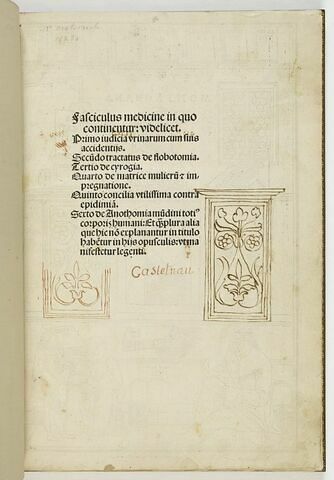 Fasciculus medicine in quo
continentur: videlicet.
Primo iudicia vrinarum cum suis
accidentijs.
Secũdo tractatus de flobotomia.
Tertio de cyrogia.
Quarto de matrice mulierũ ⁊ im
pregnatione.
Quinto concilia vtilissima contra
epidimiã.
Sexto de Anothomia mũdini toti⁹
corporis humani: Et q̃plura alia
que hic nõ explanantur in titulo
habẽtur in hijs opusculis: vt ma
nifestetur legenti.
Castelnau